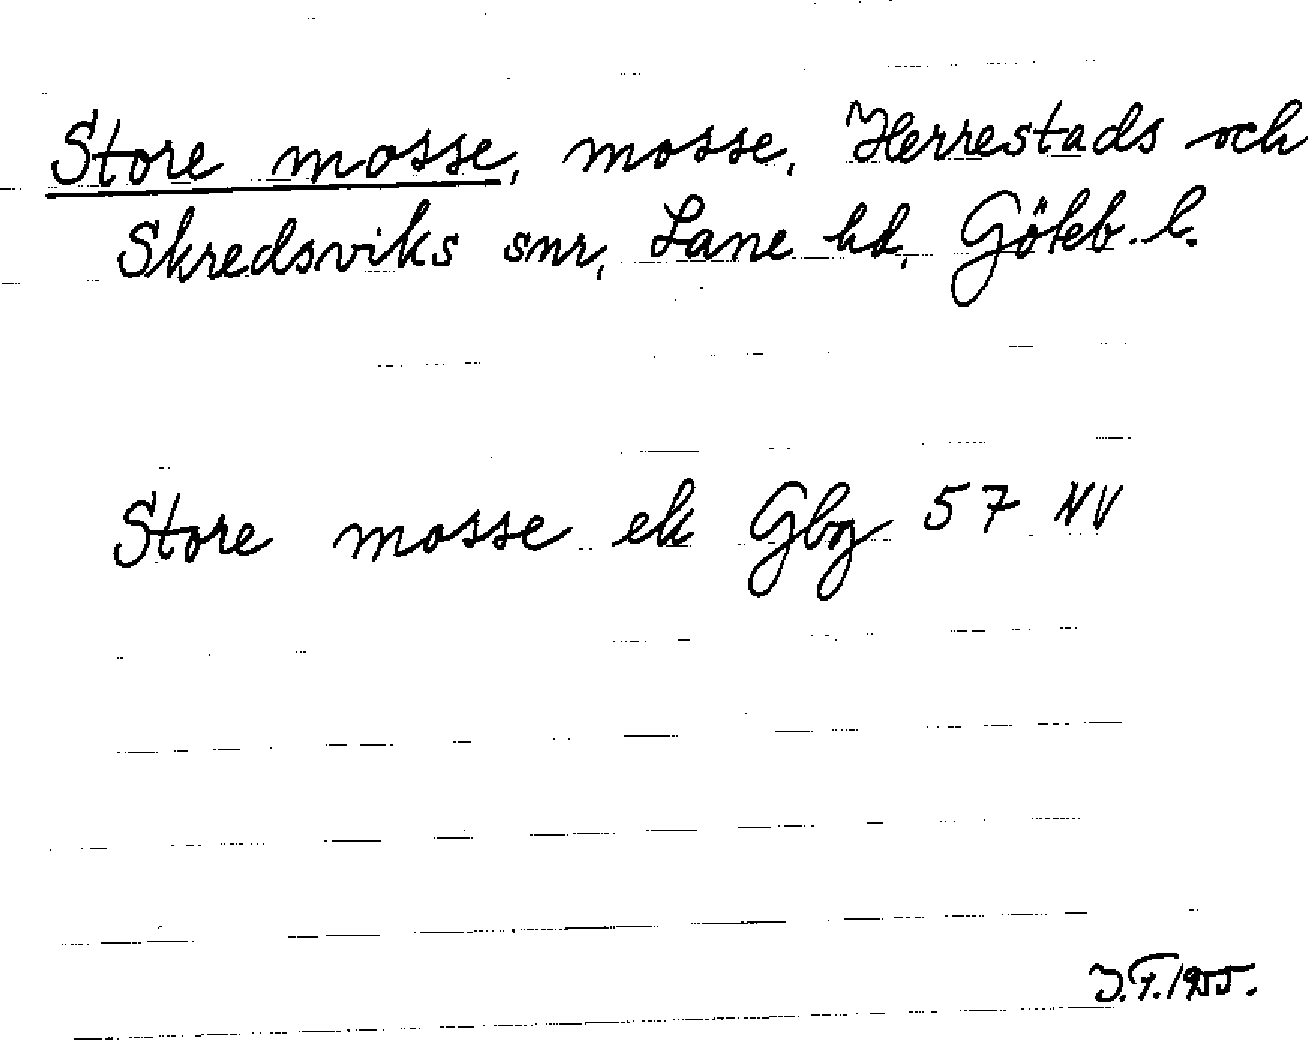 Store mosse, mosse, Herrestads och
Skredsviks snr, Lane hd, Göteb. l.
Store mosse ek Gbg 57 NV
J.F. 1955.